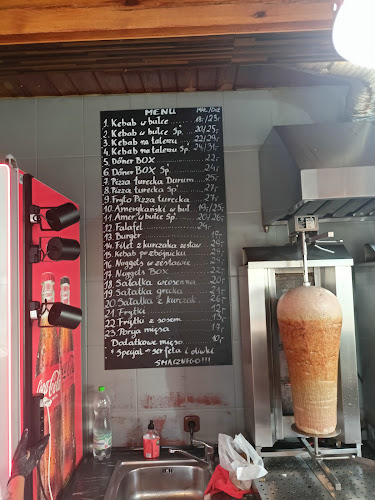 MENU MAŁ/DUŻ
1. Kebab w bułce 18/23,-
2. Kebab w bułce Sp. 20/25,-
3. Kebab na talerzu 22/29,-
4. Kebab na talerzu Sp. 24/31,-
5. Döner BOX 22,-
6. Döner BOX Sp. 24,-
7. Pizza turecka Durum 25,-
8. Pizza turecka Sp. 27,-
9. Fryto Pizza turecka 27,-
10. Amerykański w buł. 19/25,-
11. Amer. w bułce Sp. 20/26,-
12. Falafel 24,-
13. Burger
14. Filet z kurczaka zestaw
15. Kebab po zbójnicku
16. Nuggets w zestawie
17. Nuggets BOX
18. Sałatka wiosenna
19. Sałatka grecka
20. Sałatka z kurczak.
21. Frytki
22. Frytki z sosem
23. Porcja mięsa
Dodatkowe mięso 10,-
* Specjal - ser feta i oliwki
SMACZNEGO!!!
Coca-Cola